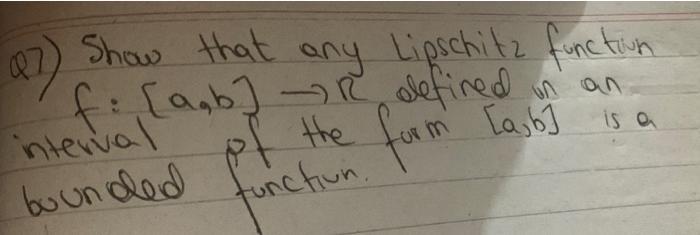 Q7) Show that any Lipschitz function
f: [a,b] → R defined on an
interval of the form [a,b] is a
bounded function.